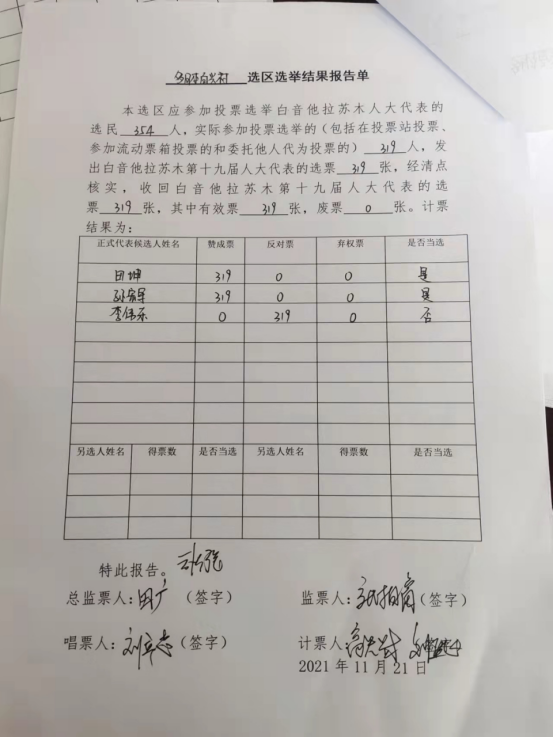 选区选举结果报告单
本选区应参加投票选举白音他拉苏木人大代表的
选民 354 人，实际参加投票选举的（包括在投票站投票、
参加流动票箱投票的和委托他人代为投票的） 319 人，发
出白音他拉苏木第十九届人大代表的选票 319 张，经清点
核实，收回白音他拉苏木第十九届人大代表的选
票 319 张，其中有效票 319 张，废票 0 张。计票
结果为：
正式代表候选人姓名 赞成票 反对票 弃权票 是否当选
田坤 319 0 0 是
319 0 0 是
李伟东 0 319 0 否
另选人姓名 得票数 是否当选 另选人姓名 得票数 是否当选
特此报告。
总监票人：田广（签字） 监票人：（签字）
唱票人：（签字） 计票人：
2021 年 11 月 21 日